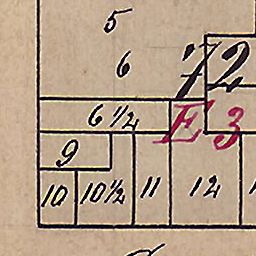 5
6
72
6 1/2
E 3
9
10
10 1/2
11
12